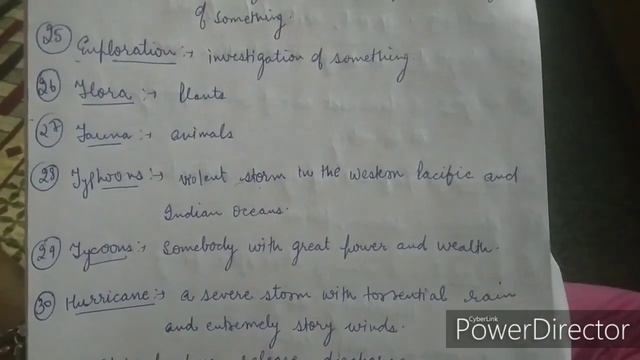 of something.
25 Exploration :→ investigation of something
26 Flora :→ Plants
27 Fauna :→ animals
28 Typhoons :→ violent storm in the western Pacific and
Indian Oceans.
29 Tycoons :→ Somebody with great power and wealth.
30 Hurricane :→ a severe storm with torrential rain
and extremely story winds.
CyberLink
PowerDirector